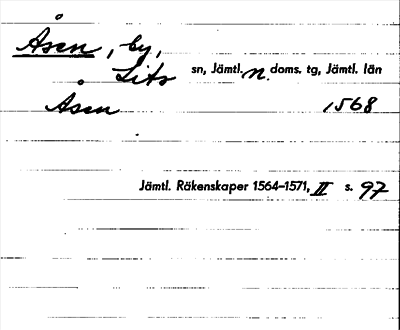 Åsen, by,
Lits sn, Jämtl. n. doms. tg, Jämtl. län
Åsen 1568
Jämtl. Räkenskaper 1564–1571, II s. 97